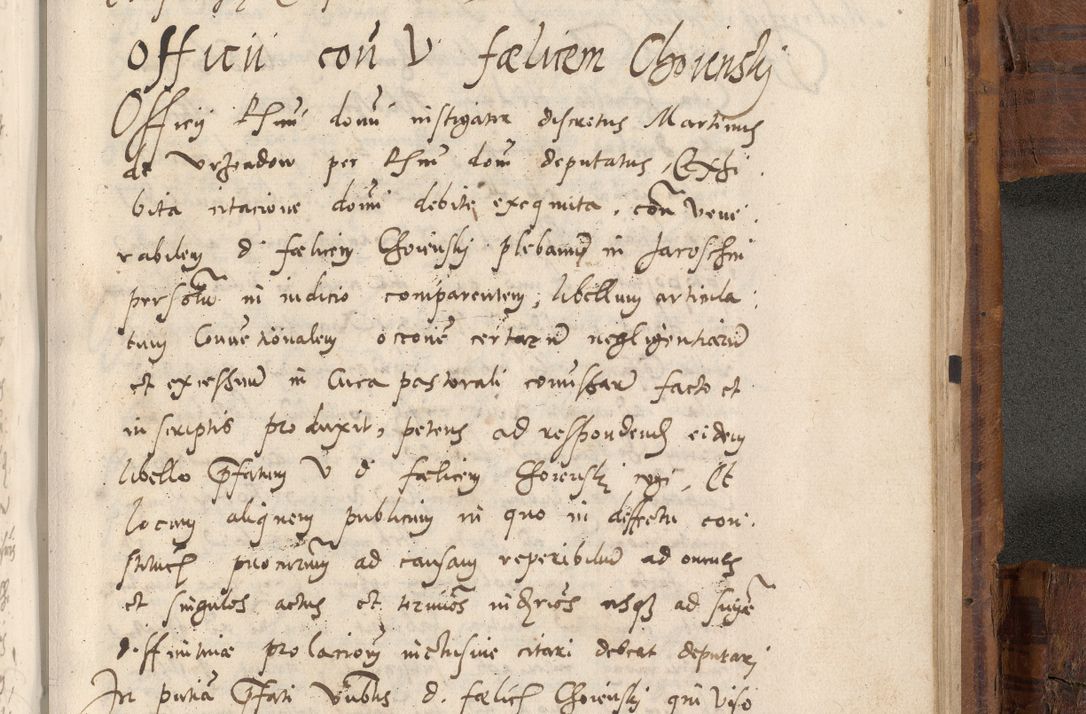 Officii con V fælicem Choienskj
Officij Rssimi domini instigator discretus Martinus
de Vrzendow per Rssmm dom deputatus, Exhi
bita citacione domi debite exequuta, con Vene
rabilem d fælicem Choienskj plebanum in Jaroschin
personalr in iudicio comparentem, libellum articula
tum Conuentionalem occone certarum negligentiarum
et excessuum in Cura pastorali comissarum facto et
in scriptis produxit, petens ad respondend eidem
libello pfatum V d fælicem Choienskj cogi, Et
locum aliquem publicum in quo in deffectu con
stituti procurum ad causam reperibilem ad omnes
et singulos actus et terminos inderios usque ad suprae
diffinitiuæ prolacionem inclusiue citari debeat deputarj
In putia pfati Vnblis d. fælicis Choienskj qui Viso